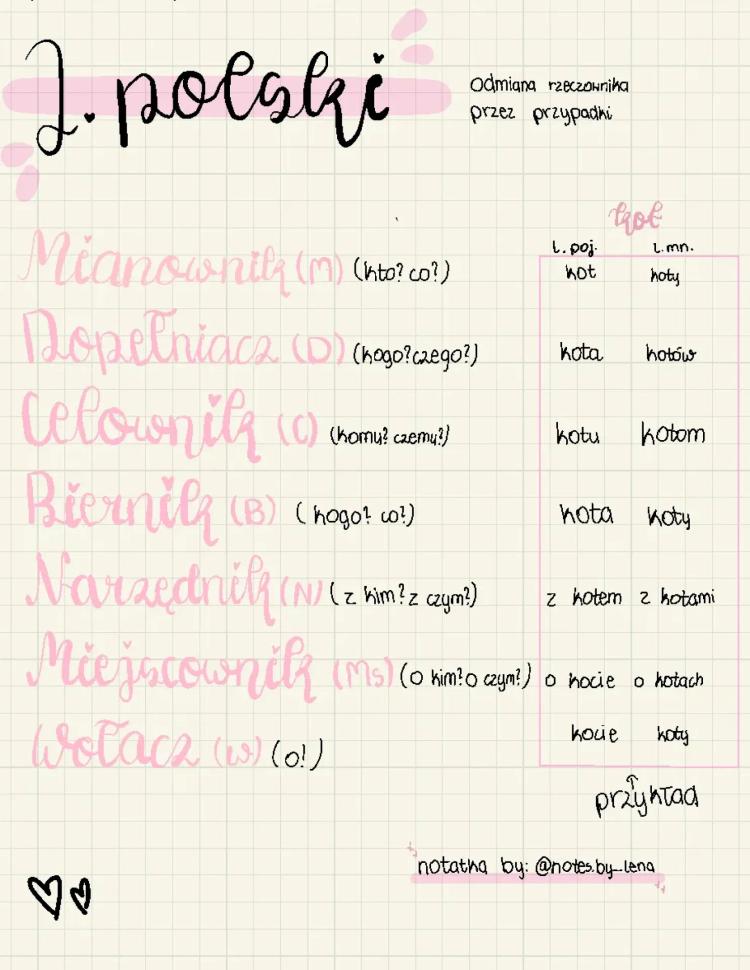 J. polski
Odmiana rzeczownika
przez przypadki
kot
l. poj. l. mn.
Mianownik (M) (kto? co?) kot koty
Dopełniacz (D) (kogo? czego?) kota kotów
Celownik (C) (komu? czemu?) kotu kotom
Biernik (B) (kogo? co?) kota koty
Narzędnik (N) (z kim? z czym?) z kotem z kotami
Miejscownik (Ms) (o kim? o czym?) o kocie o kotach
Wołacz (W) (o!) kocie koty
przykład
notatka by: @notes.by_lena